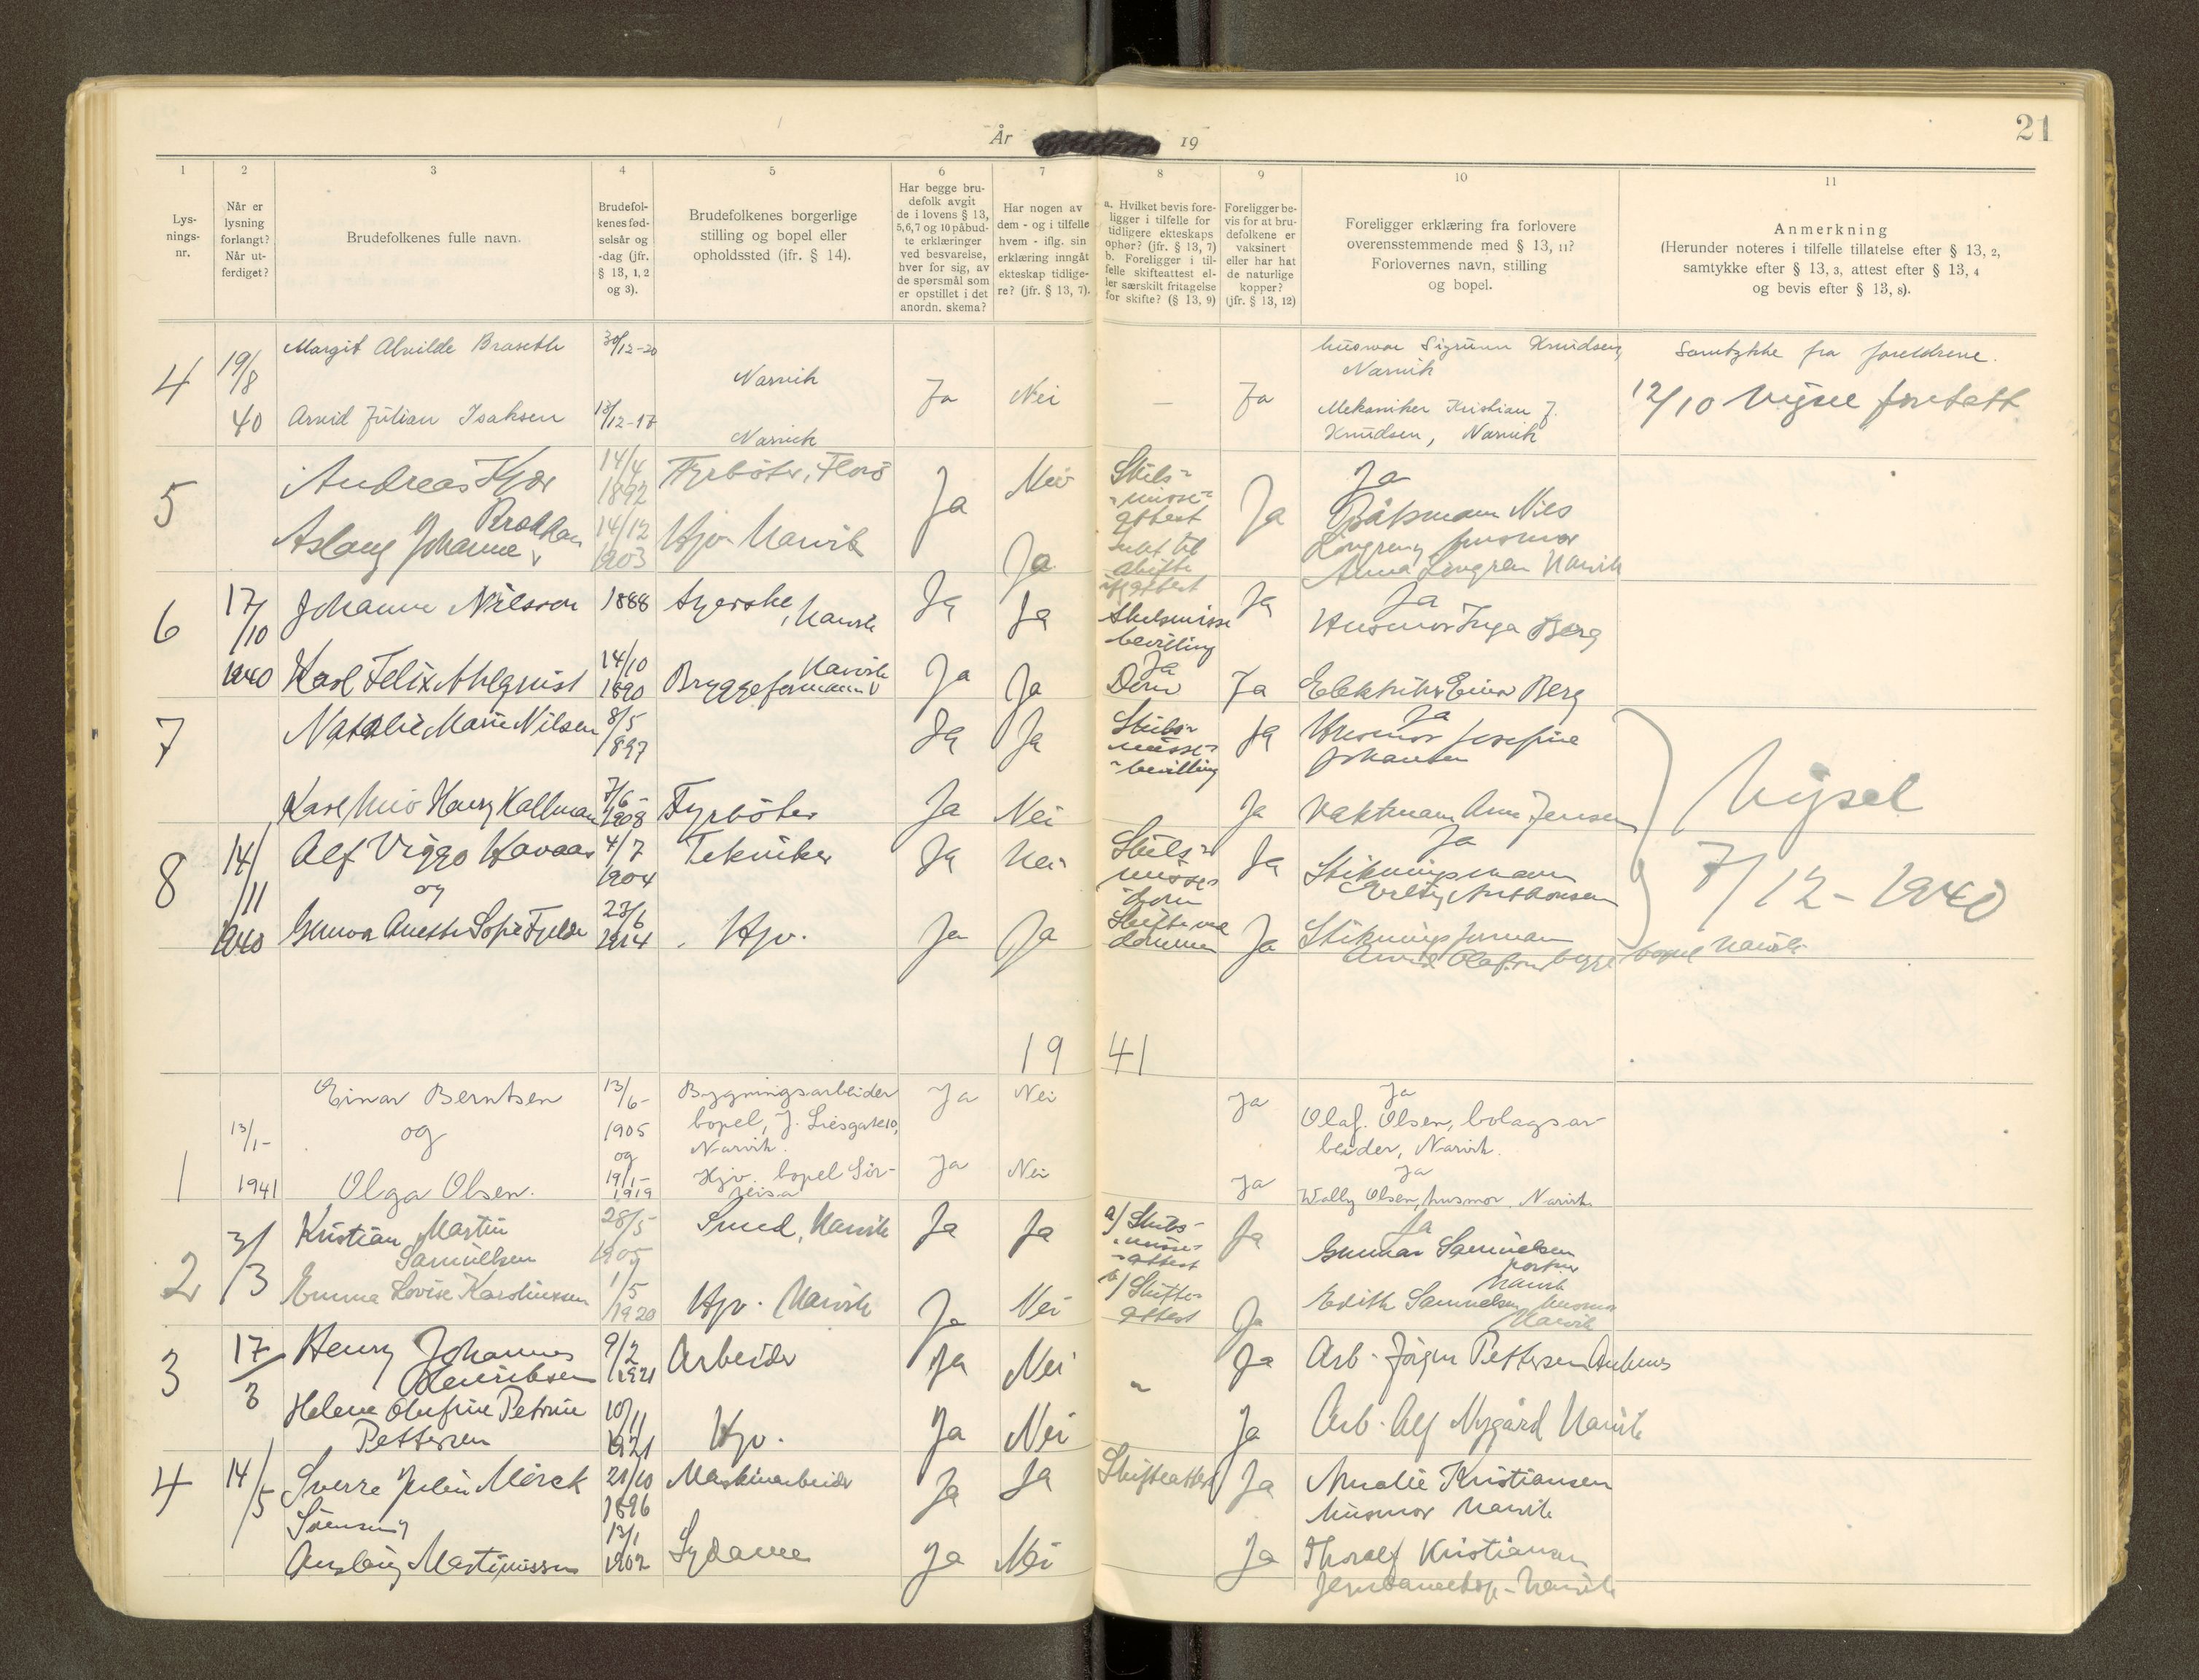 År 19
21
1 2 3 4 5 6 7 8 9 10 11
Lys-
nings-
nr.
Når er
lysning
forlangt?
Når ut-
ferdiget?
Brudefolkenes fulle navn.
Brudefol-
kenes fød-
selsår og
-dag (jfr.
§ 13, 1, 2
og 3).
Brudefolkenes borgerlige
stilling og bopel eller
opholdssted (jfr. § 14).
Har begge bru-
defolk avgit
de i lovens § 13,
5,6,7 og 10 påbud-
te erklæringer
ved besvarelse,
hver for sig, av
de spørsmål som
er opstillet i det
anordn. skema?
Har nogen av
dem - og i tilfelle
hvem - iflg. sin
erklæring inngåt
ekteskap tidlige-
re? (jfr. § 13, 7).
a. Hvilket bevis fore-
ligger i tilfelle for
tidligere ekteskaps
ophør? (jfr. § 13, 7)
b. Foreligger i til-
felle skifteattest el-
ler særskilt fritagelse
for skifte? (§ 13, 9)
Foreligger be-
vis for at bru-
defolkene er
vaksinert
eller har hat
de naturlige
kopper?
(jfr. § 13, 12)
Foreligger erklæring fra forlovere
overensstemmende med § 13, 11?
Forlovernes navn, stilling
og bopel.
Anmerkning
(Herunder noteres i tilfelle tillatelse efter § 13, 2,
samtykke efter § 13, 3, attest efter § 13, 4
og bevis efter § 13, 8).
4
19/8
40
Margit Alvilde Braseth
30/12-20
Narvik
Arvid Julian Isaksen
Narvik
Ja
Nei
—
Ja
husmor Sigrunn Knudsen,
Narvik
Mekaniker Kristian J.
Knudsen, Narvik
Samtykke fra foreldrene.
12/10 Vigsel foretatt
5
Andreas Kjær
14/4
1892
Fyrböter, Florö
Aslaug Johanne
14/12
1903
Hjv. Narvik
Ja
Nei
Ja
Skils-
misse-
attest
Ja
Ja
Båtsmann Nils
Löngren, husmor
Anna Löngren Narvik
6
17/10
1940
Johanne Nilsson
1888
Syerske, Narvik
Ja
Ja
Skilsmisse
bevilling
Ja
Ja
Husmor Inga Berg
Karl Felix Ahlquist
14/10
1890
Narvik
Bryggeformann
Ja
Ja
Ja
Dom
Ja
Elektriker Einar Berg
7
Natalie Marie Nilsen
8/5
1897
Ja
Ja
Skils-
misse-
bevilling
Ja
Ja
Husmor Josefine
Johansen
Karl Henry Kallman
7/6-
1908
Fyrböter
Ja
Nei
Ja
Vaktmann Arne Jensen
Vigsel
7/12-1940
8
14/11
1940
Alf Viggo Havaas
4/7
1904
Tekniker
Ja
Nei
Skils-
misse-
dom
Ja
Ja
Stikningsmann
Anthonsen
og
Gunvor Anette Sofie Fjelde
1914
Hjv.
Ja
Ja
Skifte ved
dommen
Ja
Stikningsforman
Arvid Olafsen begge bopel Narvik
19 41
1
13/1-
1941
Einar Berntsen
13/6-
1905
Bygningsarbeider
bopel, J. Liesgate 10,
Narvik.
Ja
Nei
Ja
Ja
Olaf Olsen, bolagsar
beider, Narvik.
og
og
Olga Olsen.
19/1-
1919
Hjv. bopel Sör-
reisa
Ja
Nei
Ja
Ja
Wally Olsen, husmor, Narvik
2
3/3
Kristian Martin
Samuelsen
28/5
1905
Smed, Narvik
Ja
Ja
a) Skils-
misse-
attest
Ja
Ja
Gunnar Samuelsen
portner
Narvik
Emma Lovise Karolinssen
1/5
1920
Hjv. Narvik
Ja
Nei
b) Skifte-
attest
Ja
Edith Samuelsen husmor
Narvik
3
17/3
Henry Johannes
Henriksen
9/2
1921
Arbeider
Ja
Nei
Ja
Arb. Jörgen Pettersen Ankenes
Helene Olufine Petrine
Pettersen
10/11
1921
Hjv.
Ja
Nei
Ja
Arb. Alf Nygård Narvik
4
14/5
Sverre Julin Mörck
Sörensen
21/10
1896
Maskinarbeider
Ja
Ja
Skifteattest
Ja
Amalie Kristiansen
husmor Narvik
Martinussen
13/1
1902
Sydame
Ja
Nei
Ja
Thoralf Kristiansen
Narvik